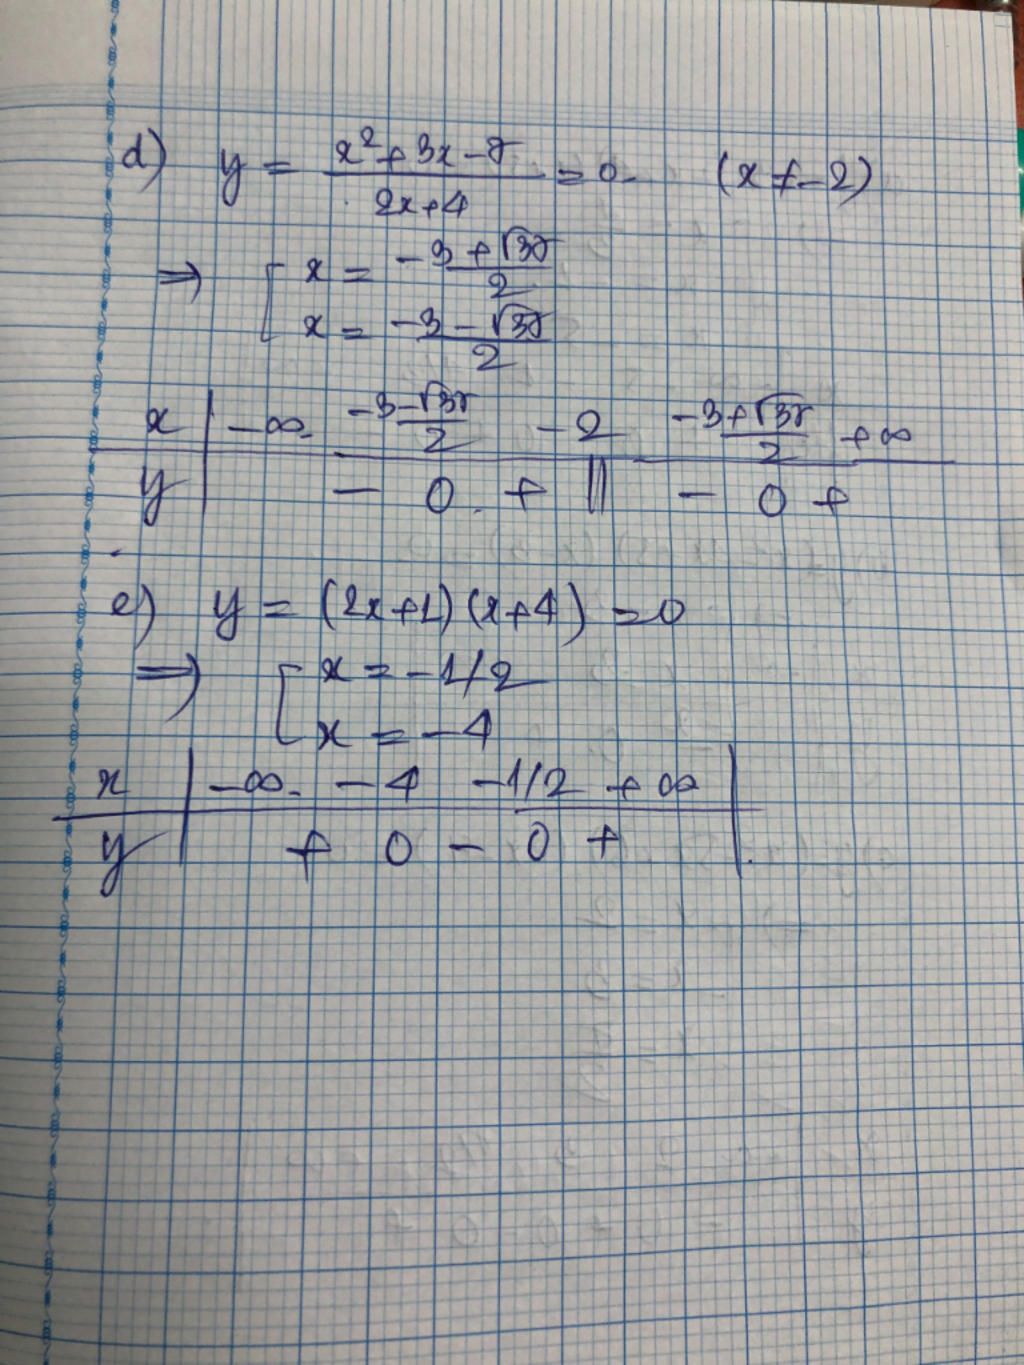 d) y = (x² + 3x - 7)/(2x+4) = 0. (x ≠ -2)
⇒ [ x = (-3 + √37)/2
x = (-3 - √37)/2
x | -∞ (-3-√37)/2 -2 (-3+√37)/2 +∞
y | - 0 + || - 0 +
e) y = (2x+1)(x+4) = 0
⇒ [ x = -1/2
x = -4
x | -∞ -4 -1/2 +∞ |
y | + 0 - 0 + |